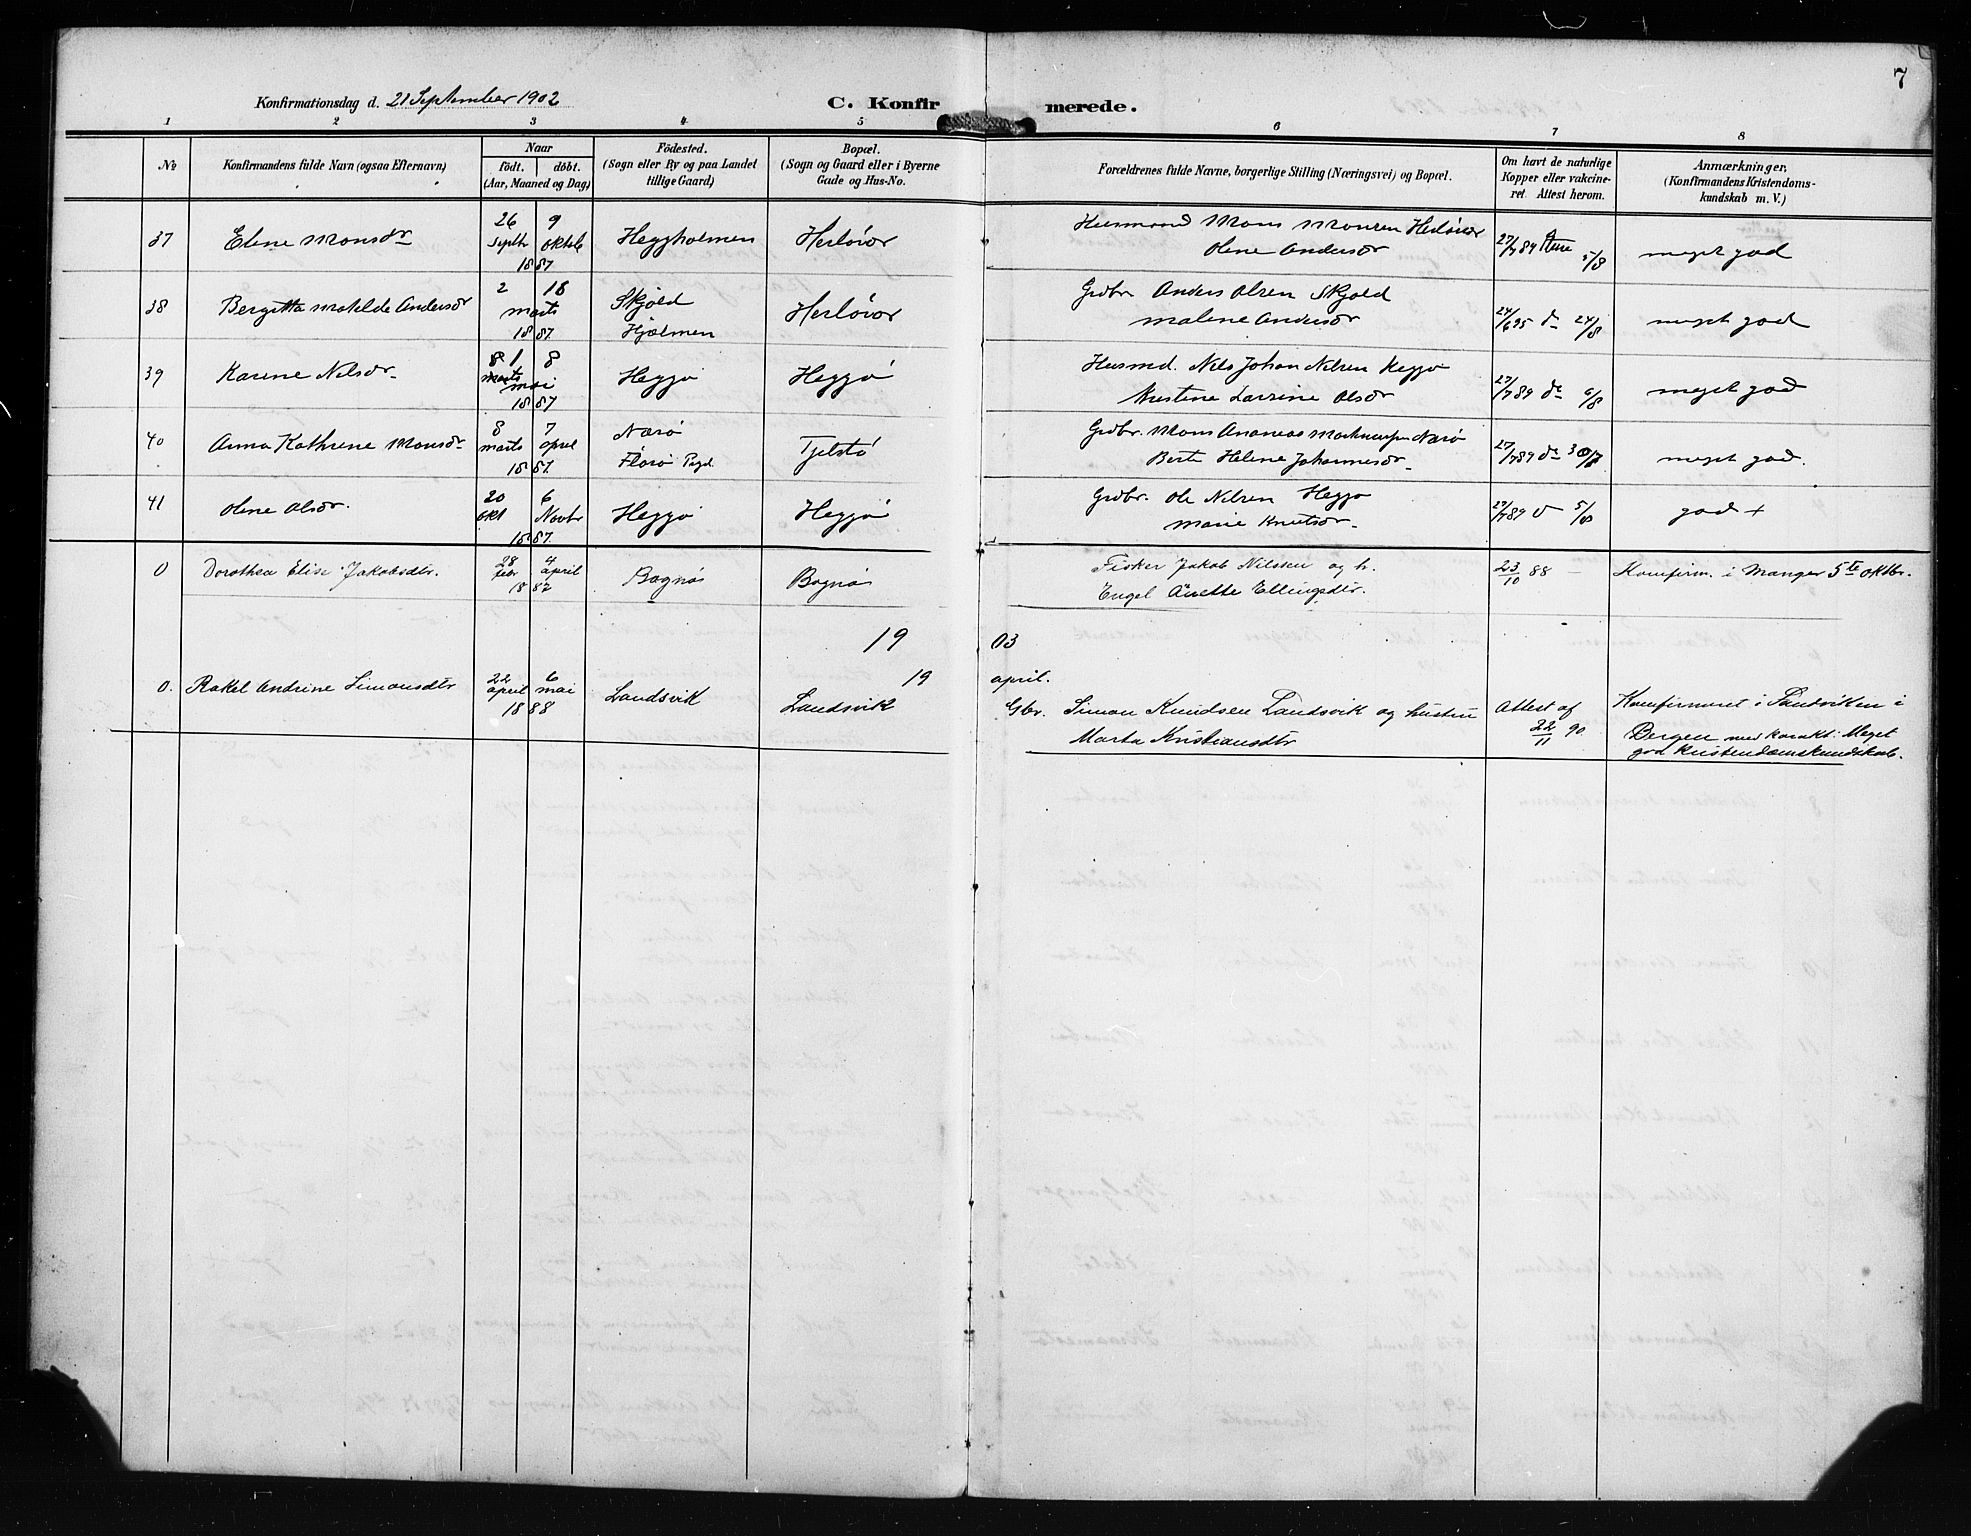 7
Konfirmationsdag d. 21 September 1902
C. Konfirmerede.
1 2 3 4 5 6 7 8
No
Konfirmandens fulde Navn (ogsaa Efternavn)
Naar
födt. döbt.
(Aar, Maaned og Dag)
Födested.
(Sogn eller By og paa Landet
tillige Gaard)
Bopæl.
(Sogn og Gaard eller i Byerne
Gade og Hus-No.
Forældrenes fulde Navne, borgerlige Stilling (Næringsvei) og Bopæl.
Om havt de naturlige
Kopper eller vakcine-
ret Attest herom.
Anmærkninger.
(Konfirmandens Kristendoms-
kundskab m. V.)
37 Elene Monsdr 26 Septbr 9 Oktob 1887 Heggholmen Herløvær Husmand Mons Monsen Herløvær
Olene Andersdr 27/7 89 5/8 meget god
38 Bergitta Matilde Andersdr 2 18 marts 1887. Skjold
Hjelmen Herløvær Grdbr Anders Olsen Skjold
Malene Andersdr 24/6 95 do 24/8 meget god
39 Karine Nilsdr. 8 marts 1 8 mai 1887 Heggø Heggø Husmd. Nils Johan Nilsen Heggø
Kristine Larsine Olsdr 27/7 89 do 6/8 meget god
40 Anna Kathrine Monsdr 8 marts 7 april 1887. Nærø
Florø Pgd. Tjelstø Grdbr. Mons Ananias Nærø
Berte Helene Johannesdr. 27/7 89 do 30/7 meget god.
41 Oline Olsdr. 20 okt 6 Novbr 1887. Heggø Heggø Grdbr. Ole Nilsen Heggø
Marie Knutsdr. 27/7 89 5/8 god +
0 Dorothea Elise Jakobsdtr. 28 febr 4 april 1882 Bognøs Bognøs Fisker Jakob Nilssen og h.
Engel Anette Ellingsdtr. 23/10 88 — Konfirm. i Manger 5te oktbr.
19 03
19 april.
0. Rakel Andrine Simonsdtr 22 april 6 mai 1888 Landsvik Landsvik Gbr. Simon Knudsen Landsvik og hustru
Marta Kristiansdtr Attest af
22/11 90 Konfirmeret i Sandviken i
Bergen med karakt: Meget
god kristendomskundskab.